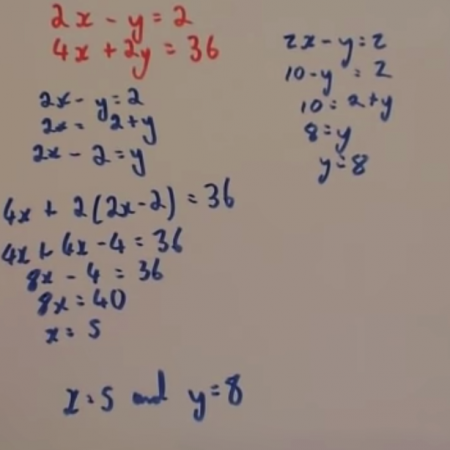 2x - y = 2
4x + 2y = 36
2x - y = 2
2x = 2 + y
2x - 2 = y
4x + 2(2x - 2) = 36
4x + 4x - 4 = 36
8x - 4 = 36
8x = 40
x = 5
2x - y = 2
10 - y = 2
10 = 2 + y
8 = y
y = 8
x = 5 and y = 8